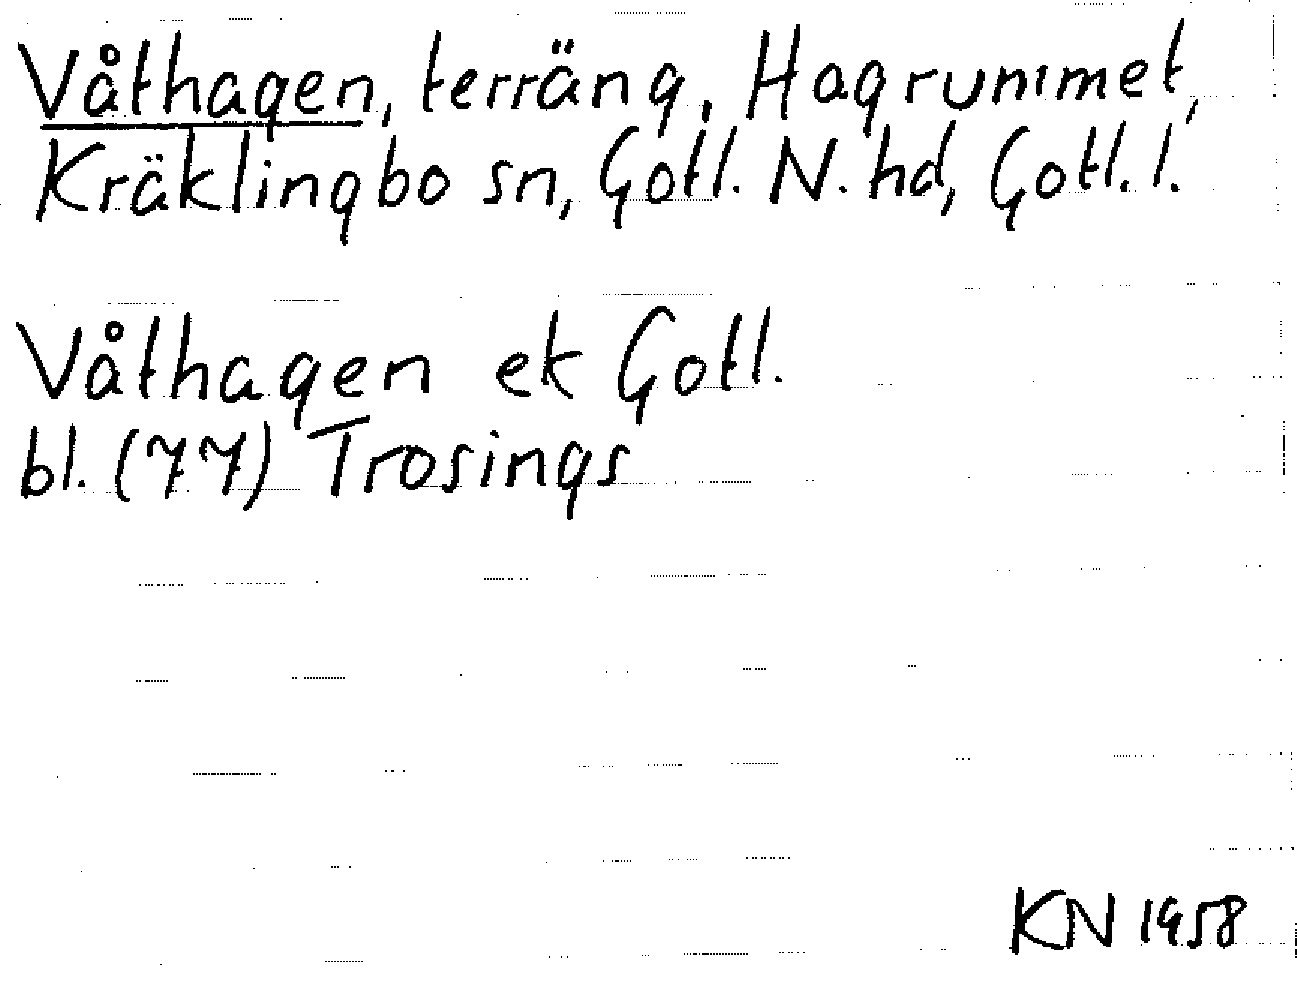 Våthagen, terräng, Hagrummet,
Kräklingbo sn, Gotl. N. hd, Gotl. l.
Våthagen ek Gotl.
bl. (77) Trosings
KN 1958